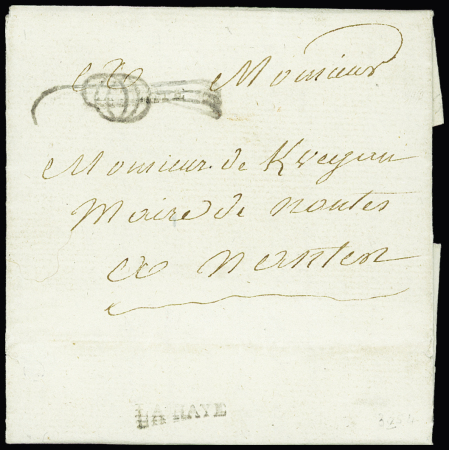 A Monsieur
Monsieur de Kvegan
Maire de nantes
A Nantes
LA HAYE